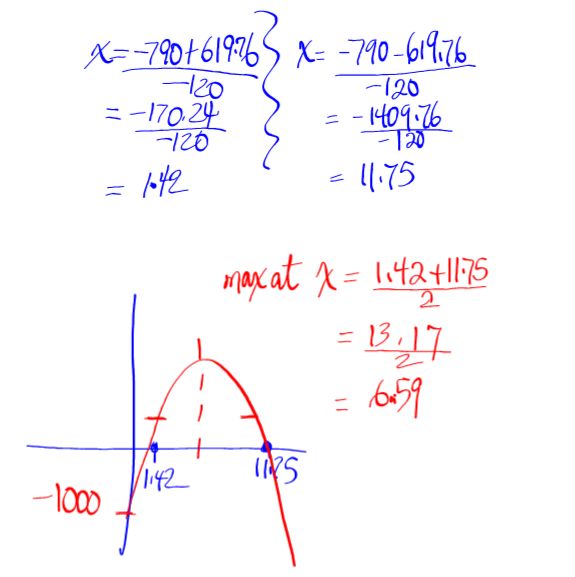 x = (-790+619.76)/-120
= -170.24/-120
= 1.42
x = (-790-619.76)/-120
= -1409.76/-120
= 11.75
max at x = (1.42+11.75)/2
= 13.17/2
= 6.59
1.42
11.75
-1000